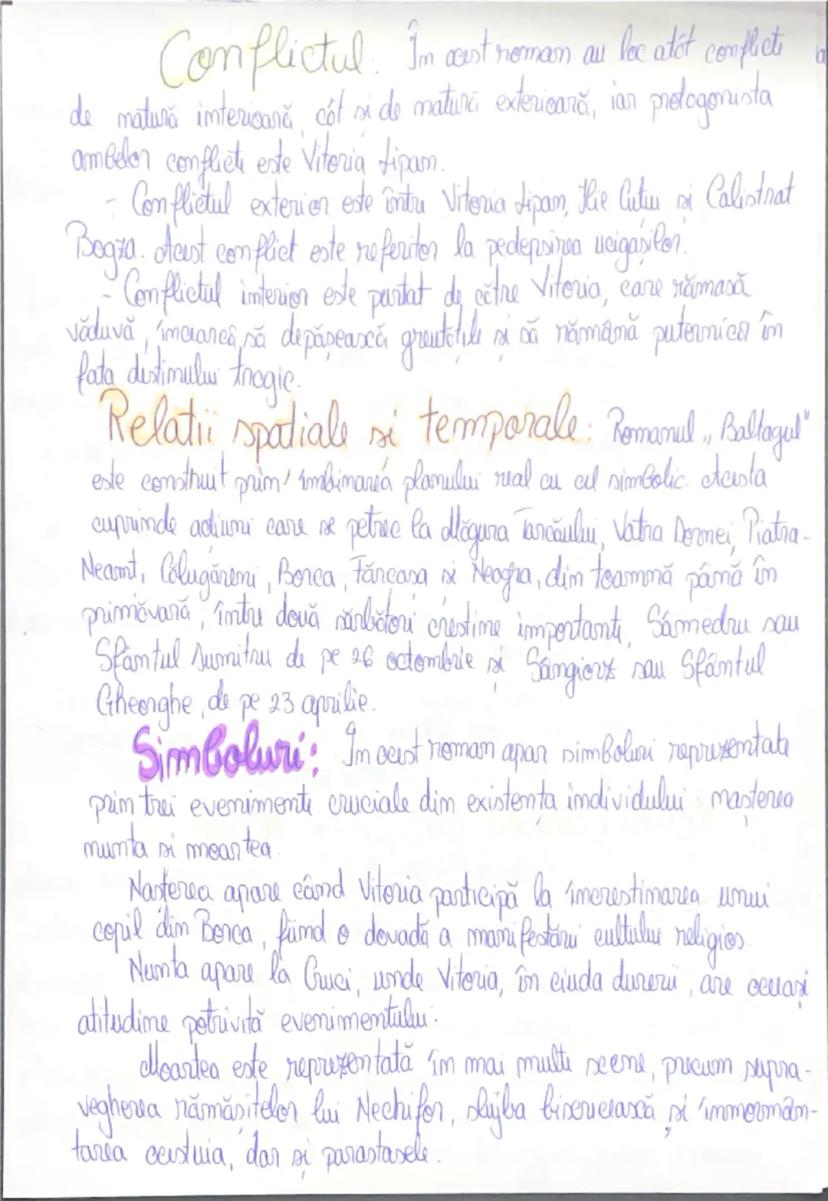 Conflictul: În acest roman au loc atât conflicte
de natură interioară, cât și de natură exterioară, iar protagonista
ambelor conflicte este Vitoria Lipan.
- Conflictul exterior este între Vitoria Lipan, Ilie Cuțui și Calistrat
Bogza. Acest conflict este referitor la pedepsirea ucigașilor.
- Conflictul interior este purtat de către Vitoria, care rămasă
văduvă, încearcă să depășească greutățile și să rămână puternică în
fața destinului tragic.
Relații spațiale și temporale: Romanul „Baltagul”
este construit prin îmbinarea planului real cu cel simbolic. Acesta
cuprinde acțiuni care se petrec la Măgura Tarcăului, Vatra Dornei, Piatra-
Neamț, Călugăreni, Borca, Fărcașa și Neagra, din toamnă până în
primăvară, între două sărbători creștine importante, Sâmedru sau
Sfântul Dumitru de pe 26 octombrie și Sângiorz sau Sfântul
Gheorghe, de pe 23 aprilie.
Simboluri: În acest roman apar simboluri reprezentate
prin trei evenimente cruciale din existența individului: nașterea
nunta și moartea.
Nașterea apare când Vitoria participă la încreștinarea unui
copil din Borca, fiind o dovadă a manifestării cultului religios.
Nunta apare la Cruci, unde Vitoria, în ciuda durerii, are aceeași
atitudine potrivită evenimentului.
Moartea este reprezentată în mai multe scene, precum supra-
vegherea rămășițelor lui Nechifor, slujba bisericească și înmormân-
tarea acestuia, dar și parastasele.